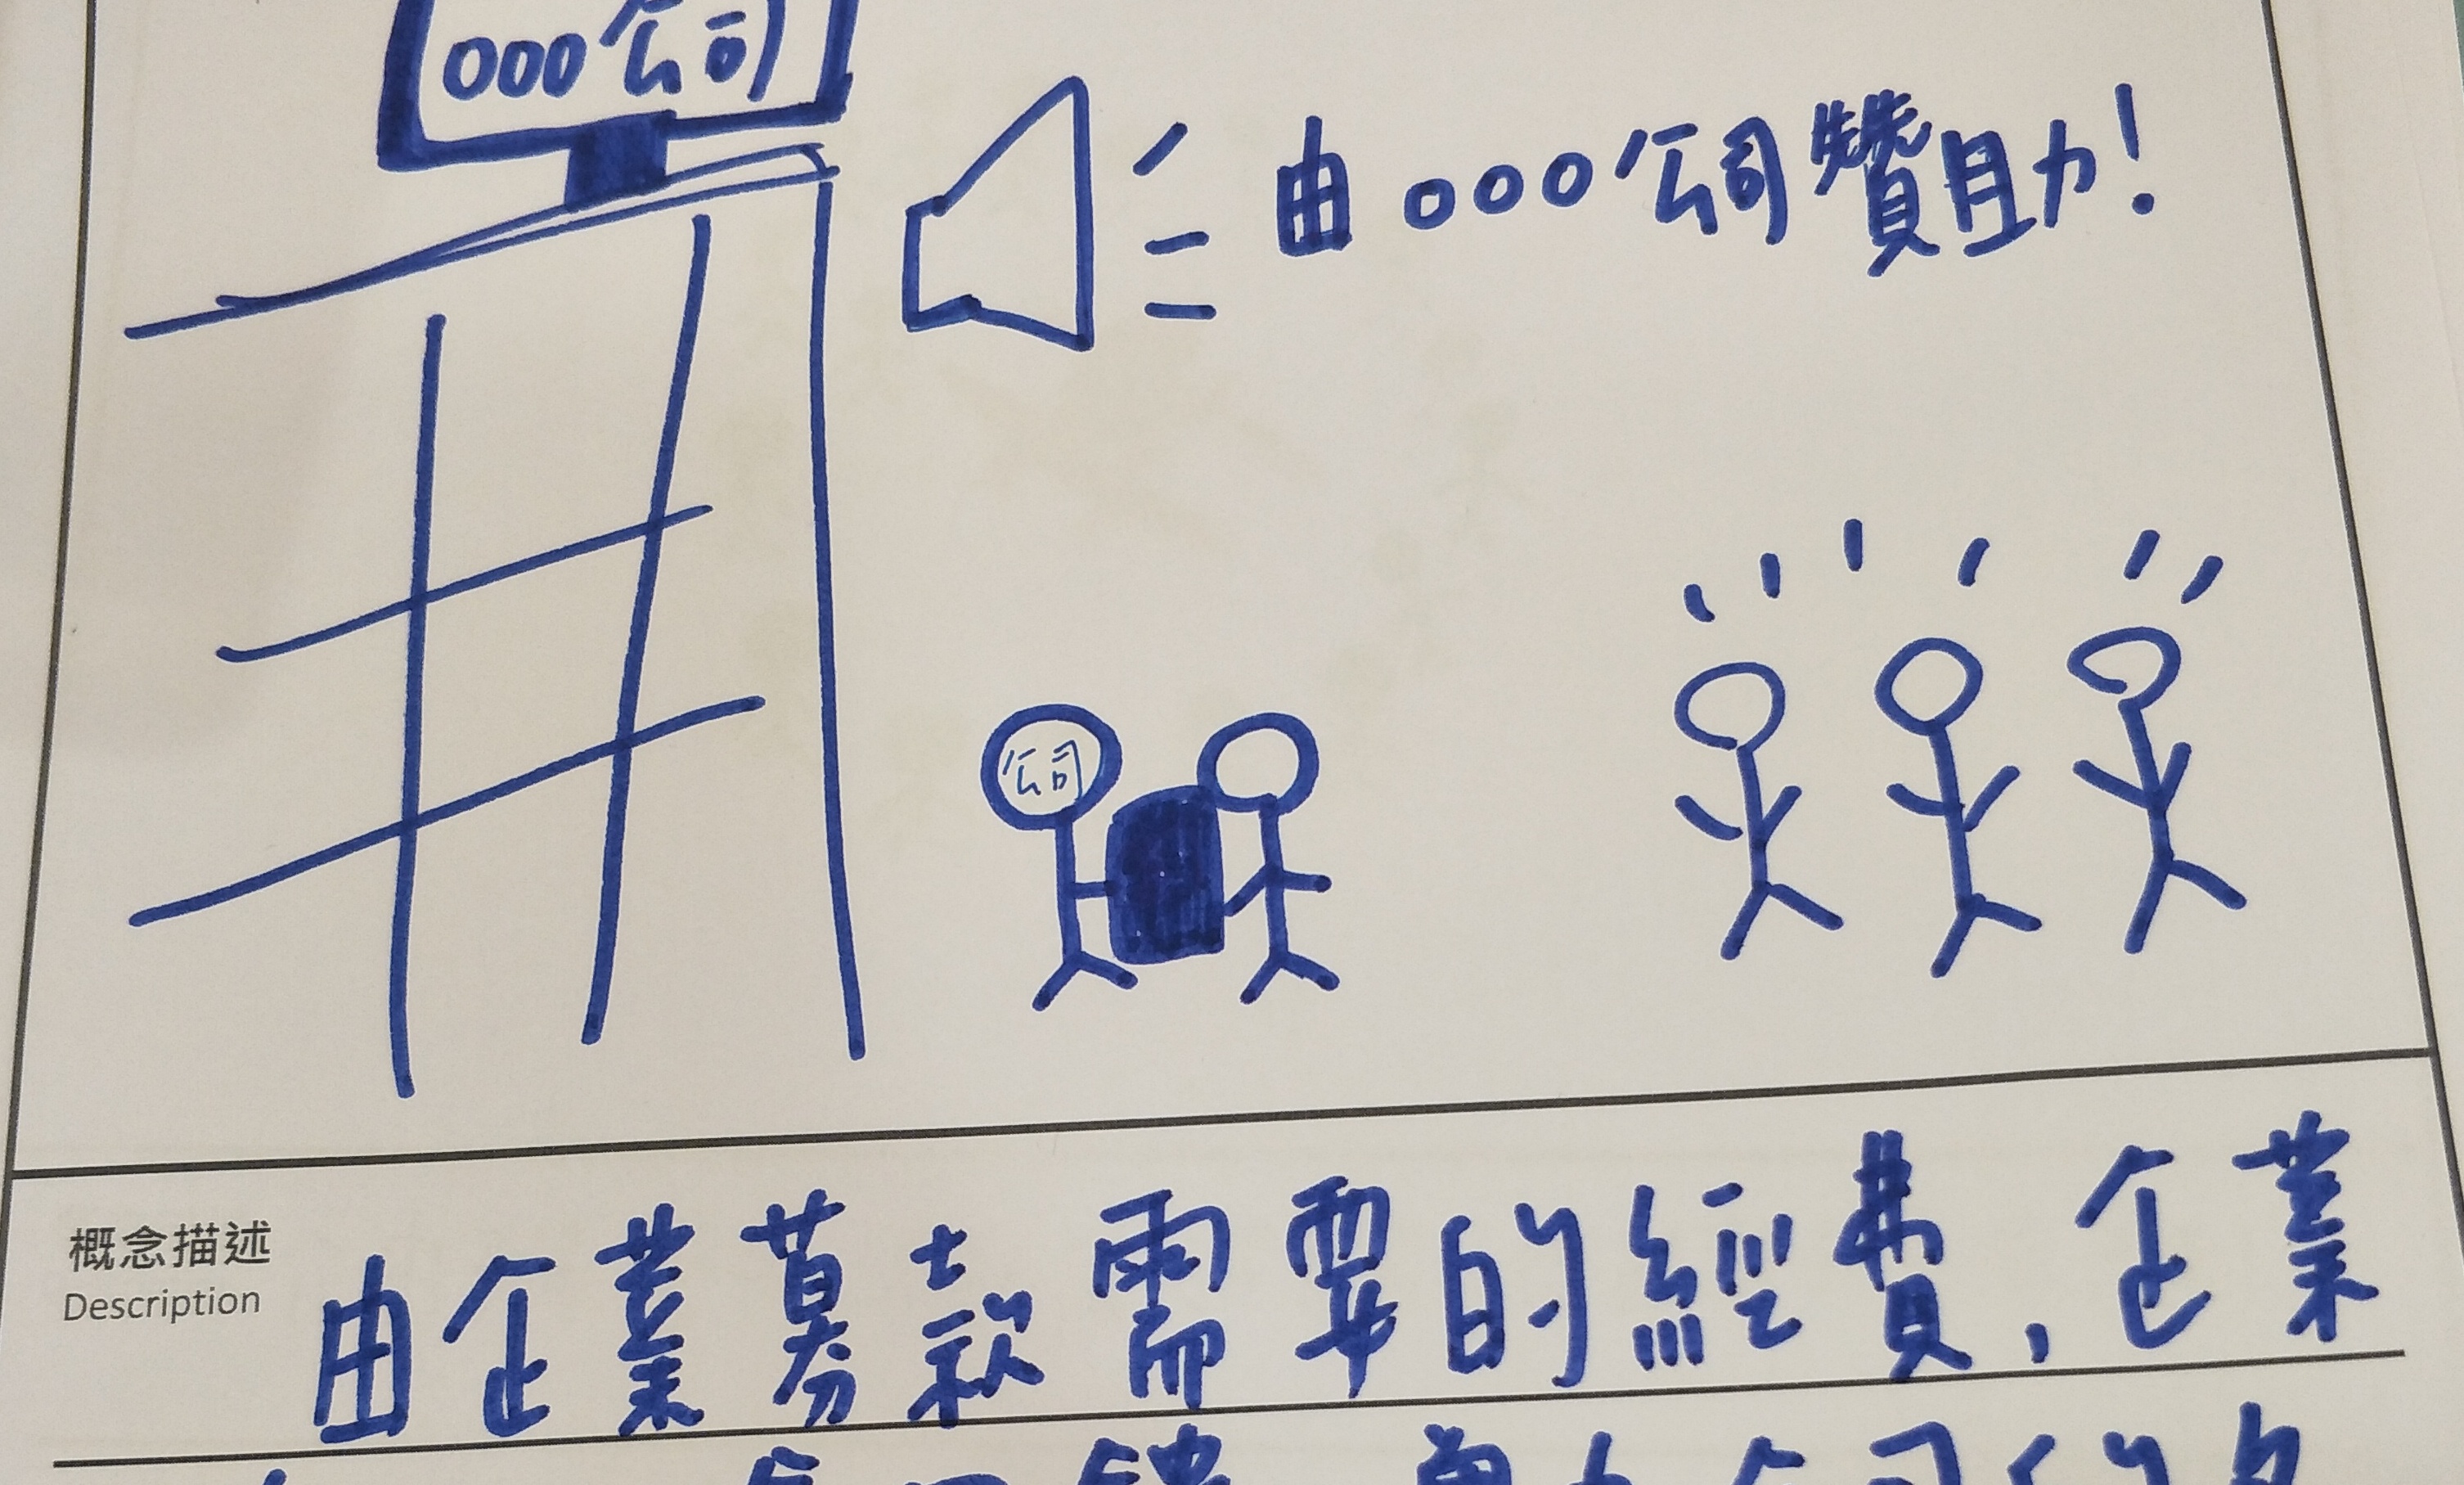 OOO公司
由OOO公司贊助!
公司
概念描述
Description
由企業募款需要的經費,企業